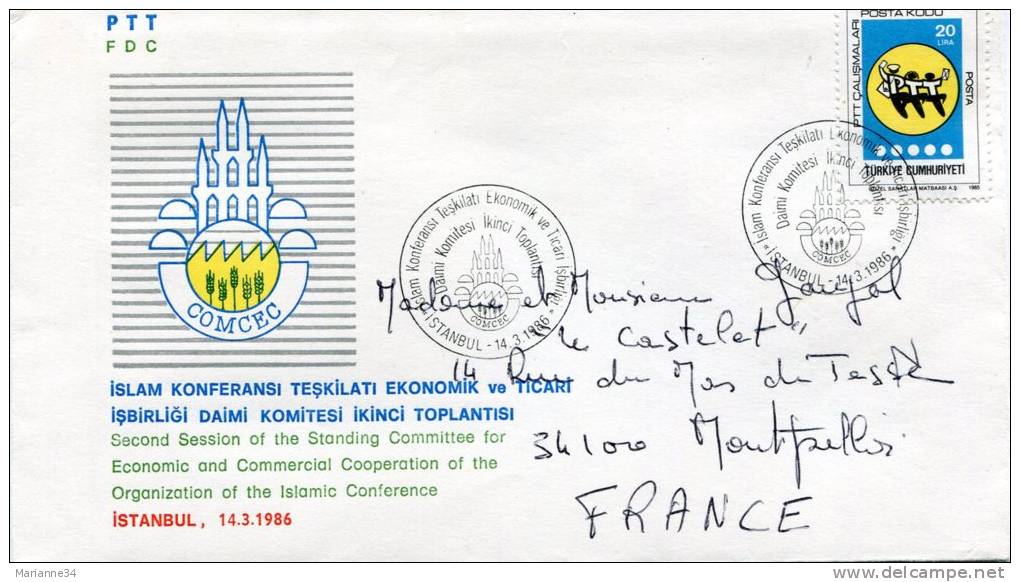 PTT
FDC
COMCEC
İSLAM KONFERANSI TEŞKİLATI EKONOMİK ve TİCARİ
İŞBİRLİĞİ DAİMİ KOMİTESİ İKİNCİ TOPLANTISI
Second Session of the Standing Committee for
Economic and Commercial Cooperation of the
Organization of the Islamic Conference
İSTANBUL, 14.3.1986
İslam Konferansı Teşkilatı Ekonomik ve Ticari İşbirliği
Daimi Komitesi İkinci Toplantısı
COMCEC
«İSTANBUL - 14.3.1986»
POSTA KODU
PTT ÇALIŞMALARI
20
LİRA
POSTA
PTT
TÜRKİYE CUMHURİYETİ
GÜZEL SANATLAR MATBAASI A.Ş. 1985
İslam Konferansı Teşkilatı Ekonomik ve Ticari İşbirliği
Daimi Komitesi İkinci Toplantısı
COMCEC
«İSTANBUL - 14.3.1986»
Madame et Monsieur
"Le Castelet"
14 Rue du Mas de
34100 Montpellier
FRANCE
Marianne34
delcampe.net